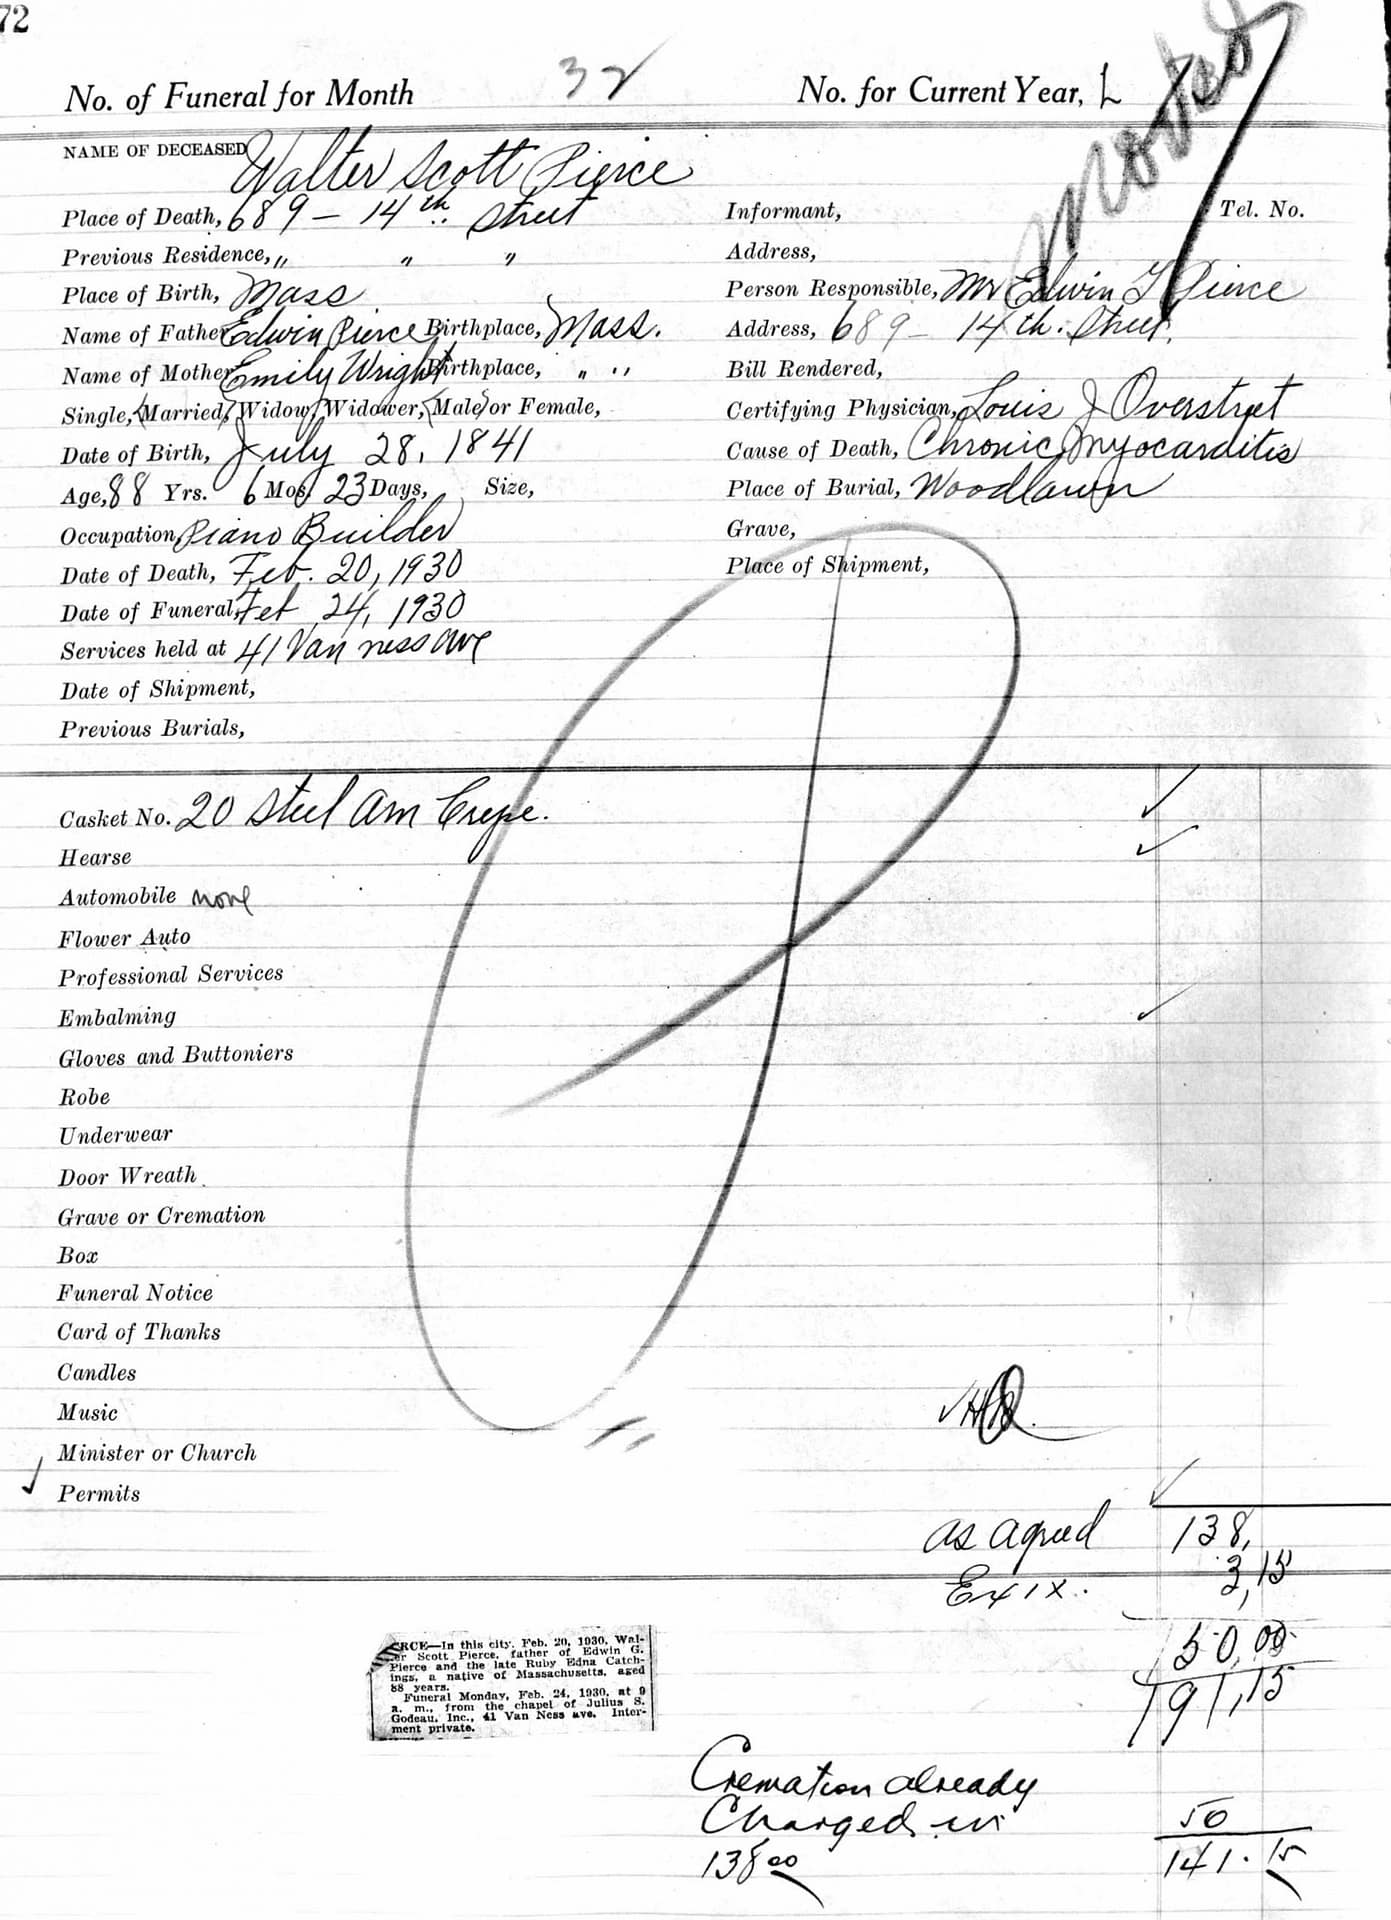 72
No. of Funeral for Month 32 No. for Current Year,
Noted
NAME OF DECEASED Walter Scott Pierce
Place of Death, 689 - 14th Street
Previous Residence, " " "
Place of Birth, Mass
Name of Father Edwin Pierce Birthplace, Mass.
Name of Mother Emily Wright Birthplace, " "
Single, (Married,) Widow, Widower, (Male) or Female,
Date of Birth, July 28, 1841
Age, 88 Yrs. 6 Mos. 23 Days, Size,
Occupation, Piano Builder
Date of Death, Feb. 20, 1930
Date of Funeral, Feb 24, 1930
Services held at 41 Van ness ave
Date of Shipment,
Previous Burials,
Informant, Tel. No.
Address,
Person Responsible, Mr Edwin G Pierce
Address, 689 - 14th. Street.
Bill Rendered,
Certifying Physician, Louis J Overstreet
Cause of Death, Chronic Myocarditis
Place of Burial, Woodlawn
Grave,
Place of Shipment,
Casket No. 20 Steel Am Crepe.
Hearse
Automobile none
Flower Auto
Professional Services
Embalming
Gloves and Buttoniers
Robe
Underwear
Door Wreath
Grave or Cremation
Box
Funeral Notice
Card of Thanks
Candles
Music
Minister or Church
Permits
as agreed 138,
Ex 1x. 3,15
50,00
191,15
RCE—In this city, Feb. 20, 1930, Wal-
er Scott Pierce, father of Edwin G.
Pierce and the late Ruby Edna Catch-
ings, a native of Massachusetts, aged
88 years.
Funeral Monday, Feb. 24, 1930, at 9
a. m., from the chapel of Julius S.
Godeau, Inc., 41 Van Ness ave. Inter-
ment private.
Cremation already
Charged in 50
138.00 141.15